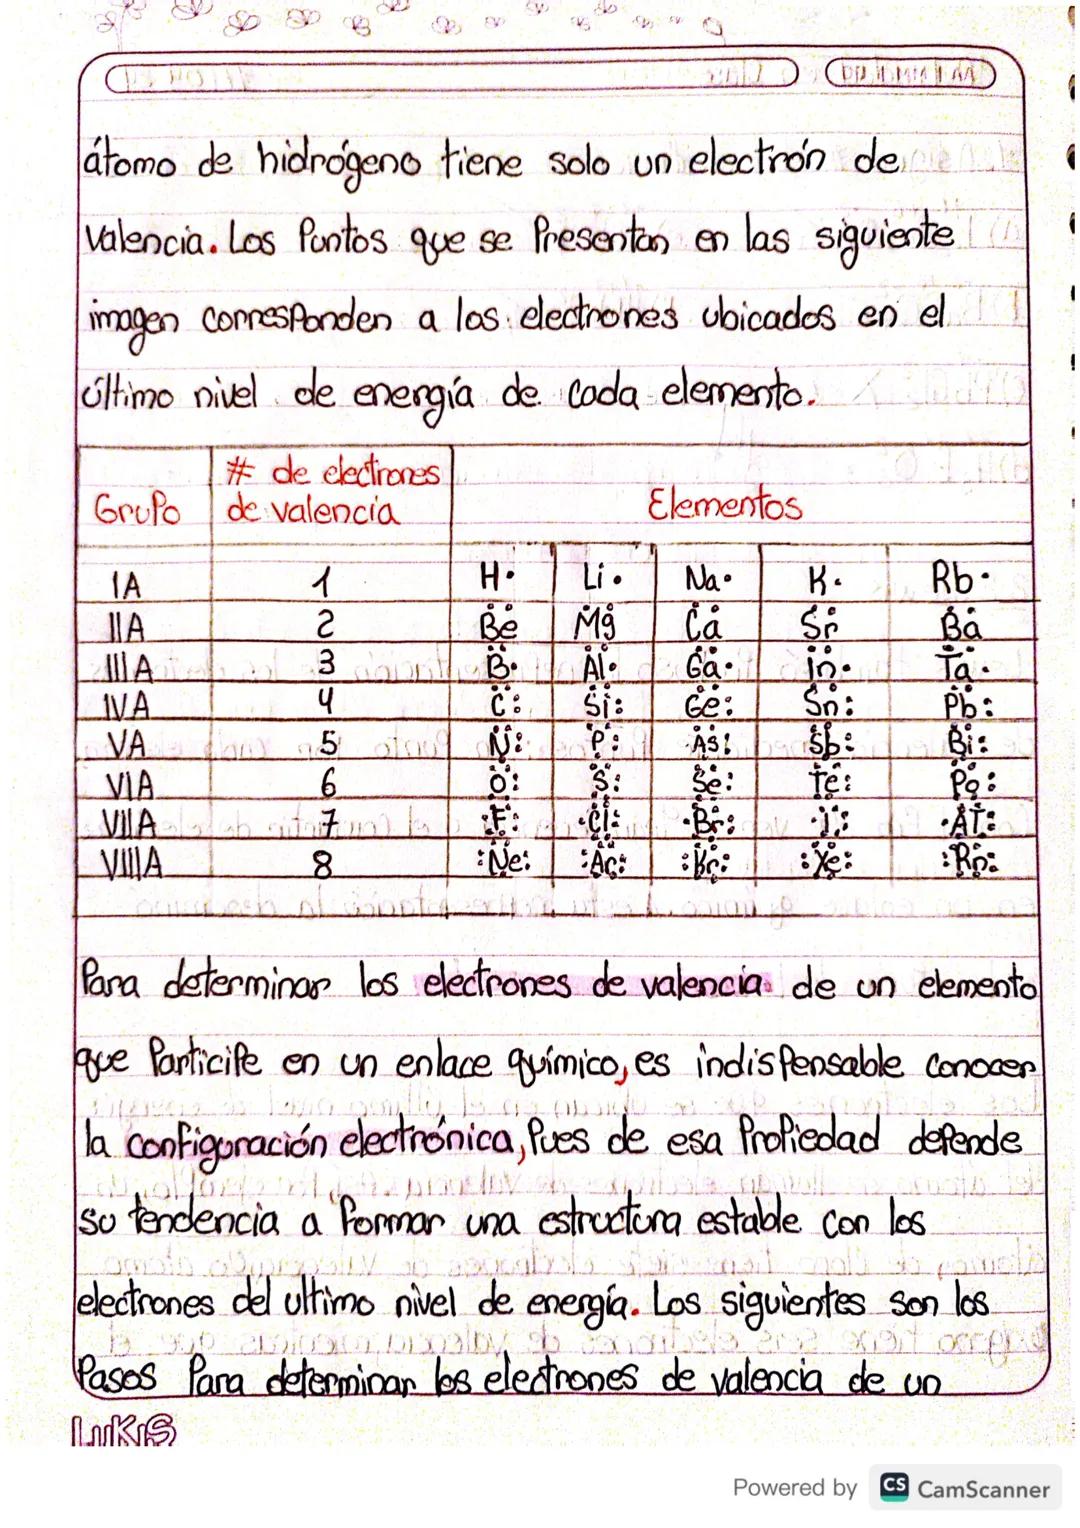 átomo de hidrógeno tiene solo un electrón de
Valencia. Los Puntos que se Presentan en las siguiente
imagen corresponden a los electrones ubicados en el
último nivel de energía de cada elemento.
Grupo # de electrones de valencia Elementos
IA 1 H· Li· Na· K· Rb·
IIA 2 Be Mg Ca Sr Ba
IIIA 3 B· Al· Ga· In· Ta·
IVA 4 C: Si: Ge: Sn: Pb:
VA 5 N: P: As: Sb: Bi:
VIA 6 O: S: Se: Te: Po:
VIIA 7 :F: ·Cl: ·Br: ·I: ·AT:
VIIIA 8 :Ne: :Ar: :Kr: :Xe: :Rn:
Para determinar los electrones de valencia de un elemento
que Participe en un enlace químico, es indispensable conocer
la configuración electrónica, Pues de esa Propiedad depende
su tendencia a formar una estructura estable con los
electrones del ultimo nivel de energía. Los siguientes son los
Pasos Para determinar los electrones de valencia de un
LUKIS
Powered by CS CamScanner